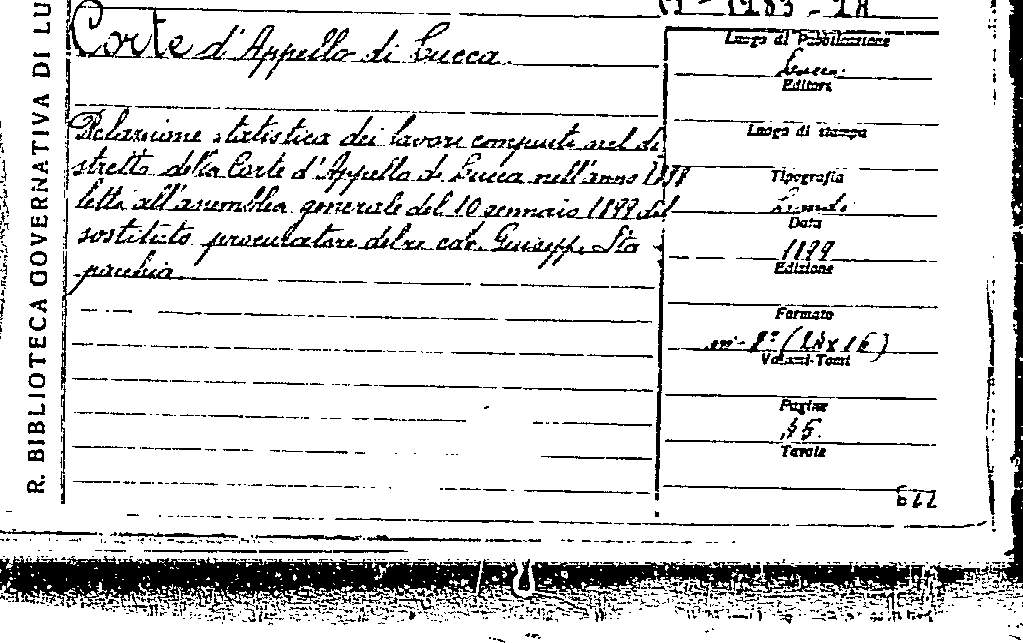 R. BIBLIOTECA GOVERNATIVA DI LU
Corte d'Appello di Lucca.
Relazione statistica dei lavori compiuti nel di
stretto della Corte d'Appello di Lucca nell'anno 1898
letta all'assemblea generale del 10 gennaio 1899 dal
sostituto procuratore del re cav. Giusepp. Sta
pacchia.
Luogo di Pubblicazione
Lucca
Editore
Luogo di stampa
Tipografia
Data
1899
Edizione
Formato
in-8° (24x16)
Volumi-Tomi
Pagine
45
Tavole
622